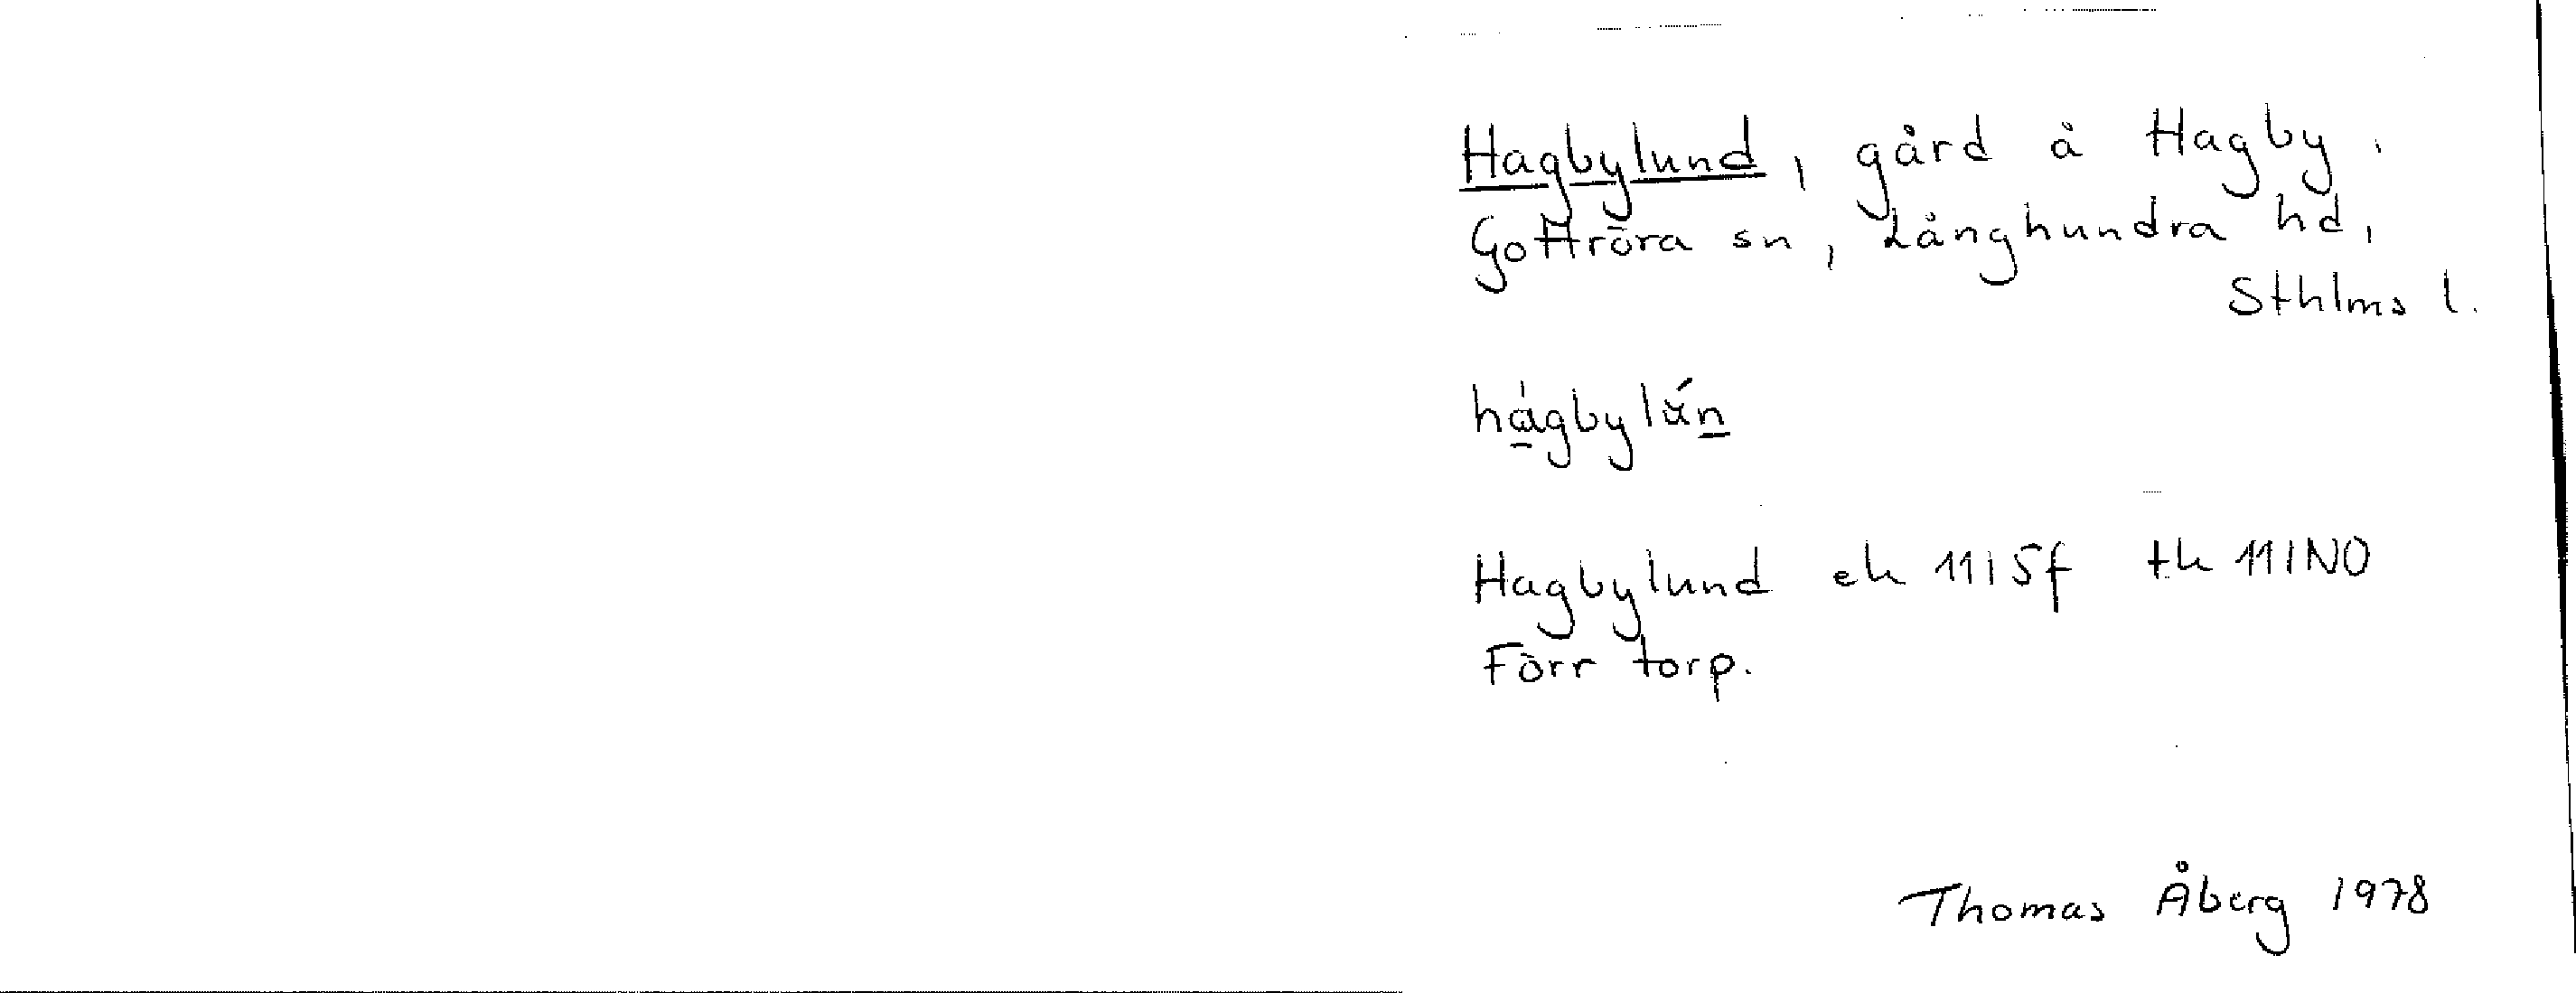 Hagbylund, gård å Hagby,
Gottröra sn, Långhundra hd,
Sthlms l.
hágbylún
Hagbylund ek 11I5f tk 11INO
Förr torp.
Thomas Åberg 1978